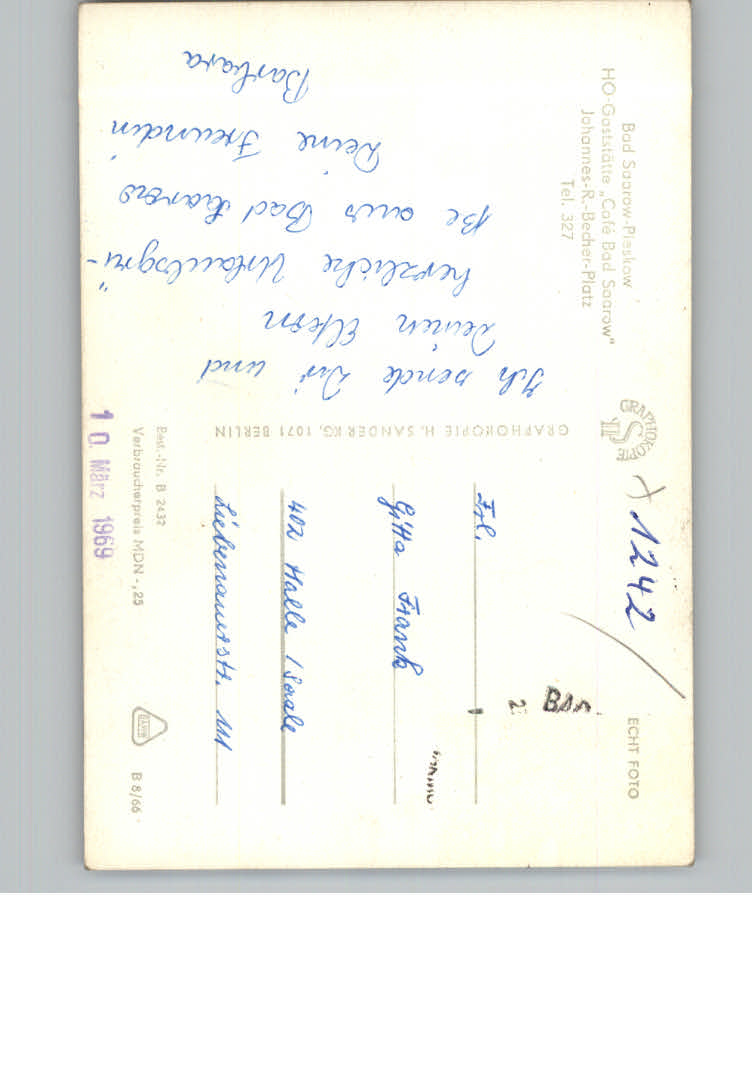 Bad Saarow-Pieskow
HO-Gaststätte „Café Bad Saarow"
Johannes-R.-Becher-Platz
Tel. 327
Ich sende Dir und
Deinen Eltern
herzliche Urlaubsgrü-
ße aus Bad Saarow
Deine Freundin
Barbara
GRAPHOKOPIE H. SANDER KG, 1071 BERLIN
GRAPHOKOPIE
HS
X 1242
ECHT FOTO
Frl.
Gitta Frank
402 Halle / Saale
Liebenauerstr. 111
Best.-Nr. B 2432
Verbraucherpreis MDN -,25
10. März 1969
B 8/66